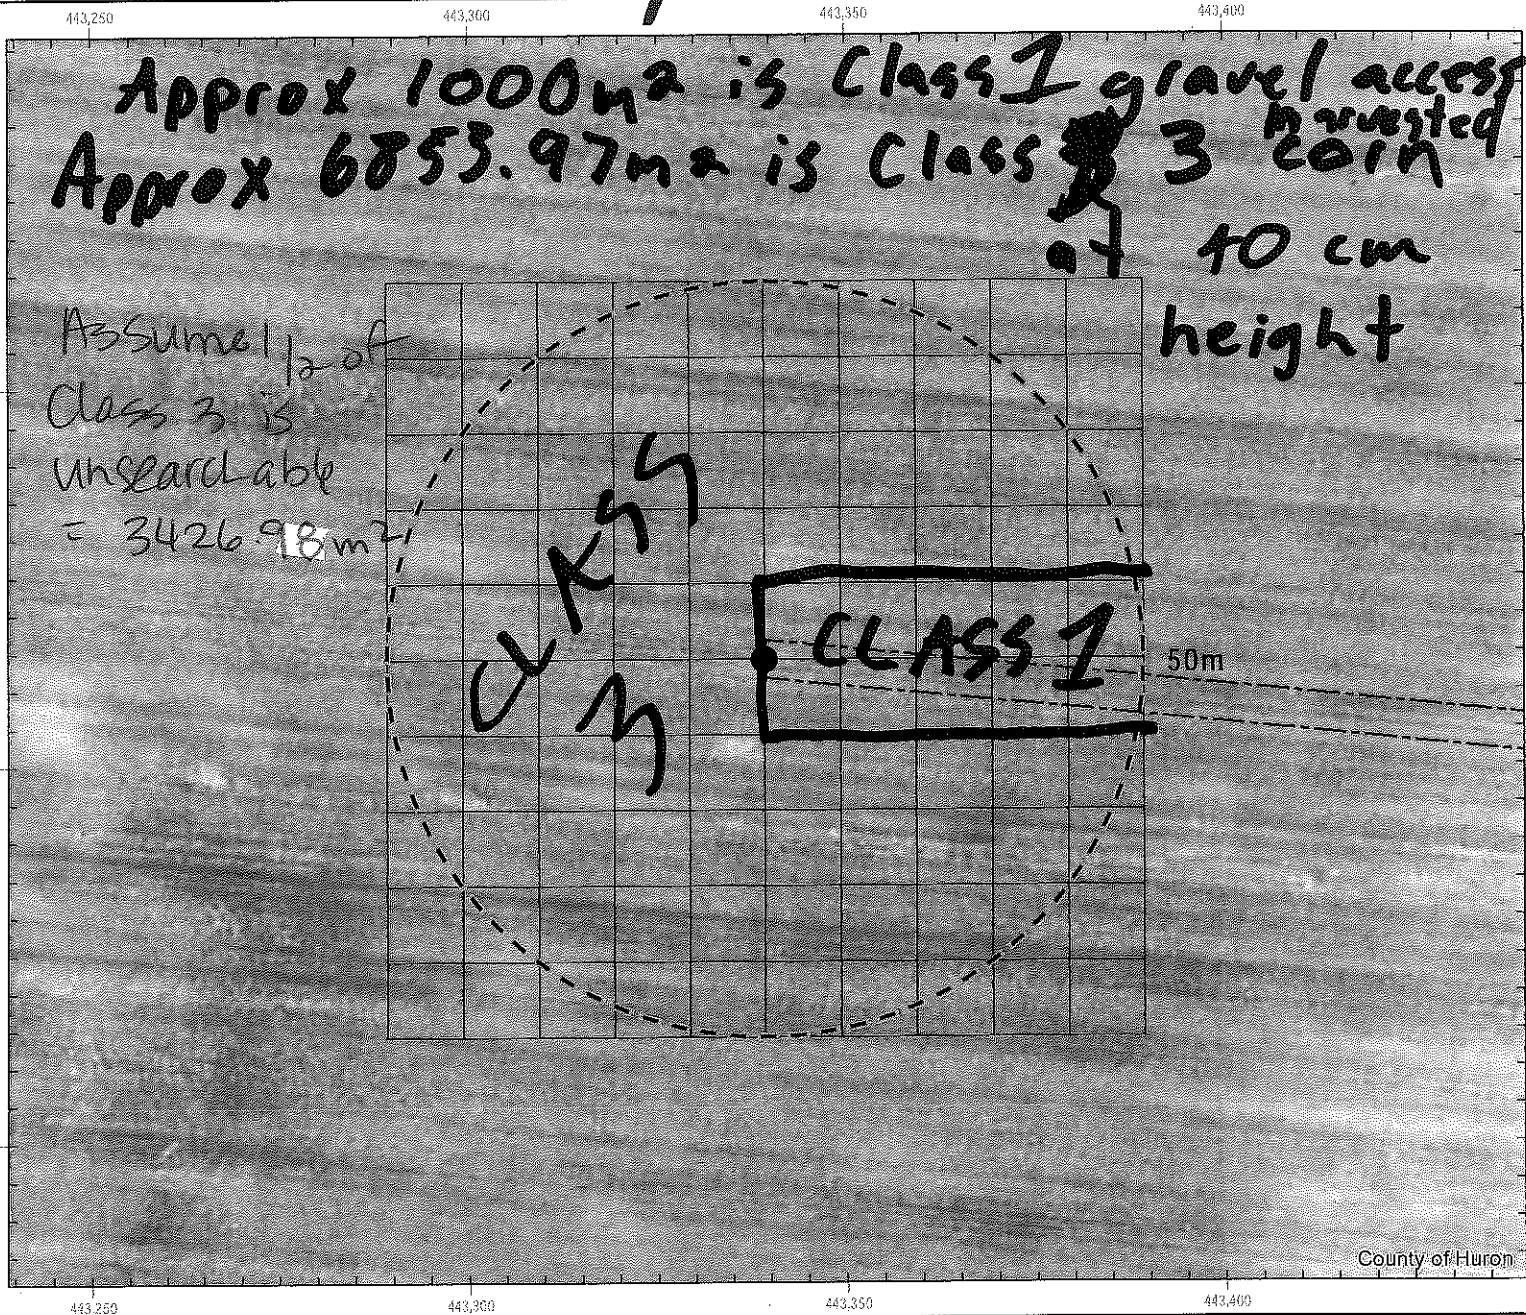 443,250 443,300 443,350 443,400
Approx 1000m2 is Class 1 gravel access
Approx 6853.97m2 is Class 3 harvested corn
at 40 cm
height
Assume 1/2 of
Class 3 is
unsearchable
= 3426.98m2
CLASS
3
CLASS 1
50m
County of Huron
443,250 443,300 443,350 443,400